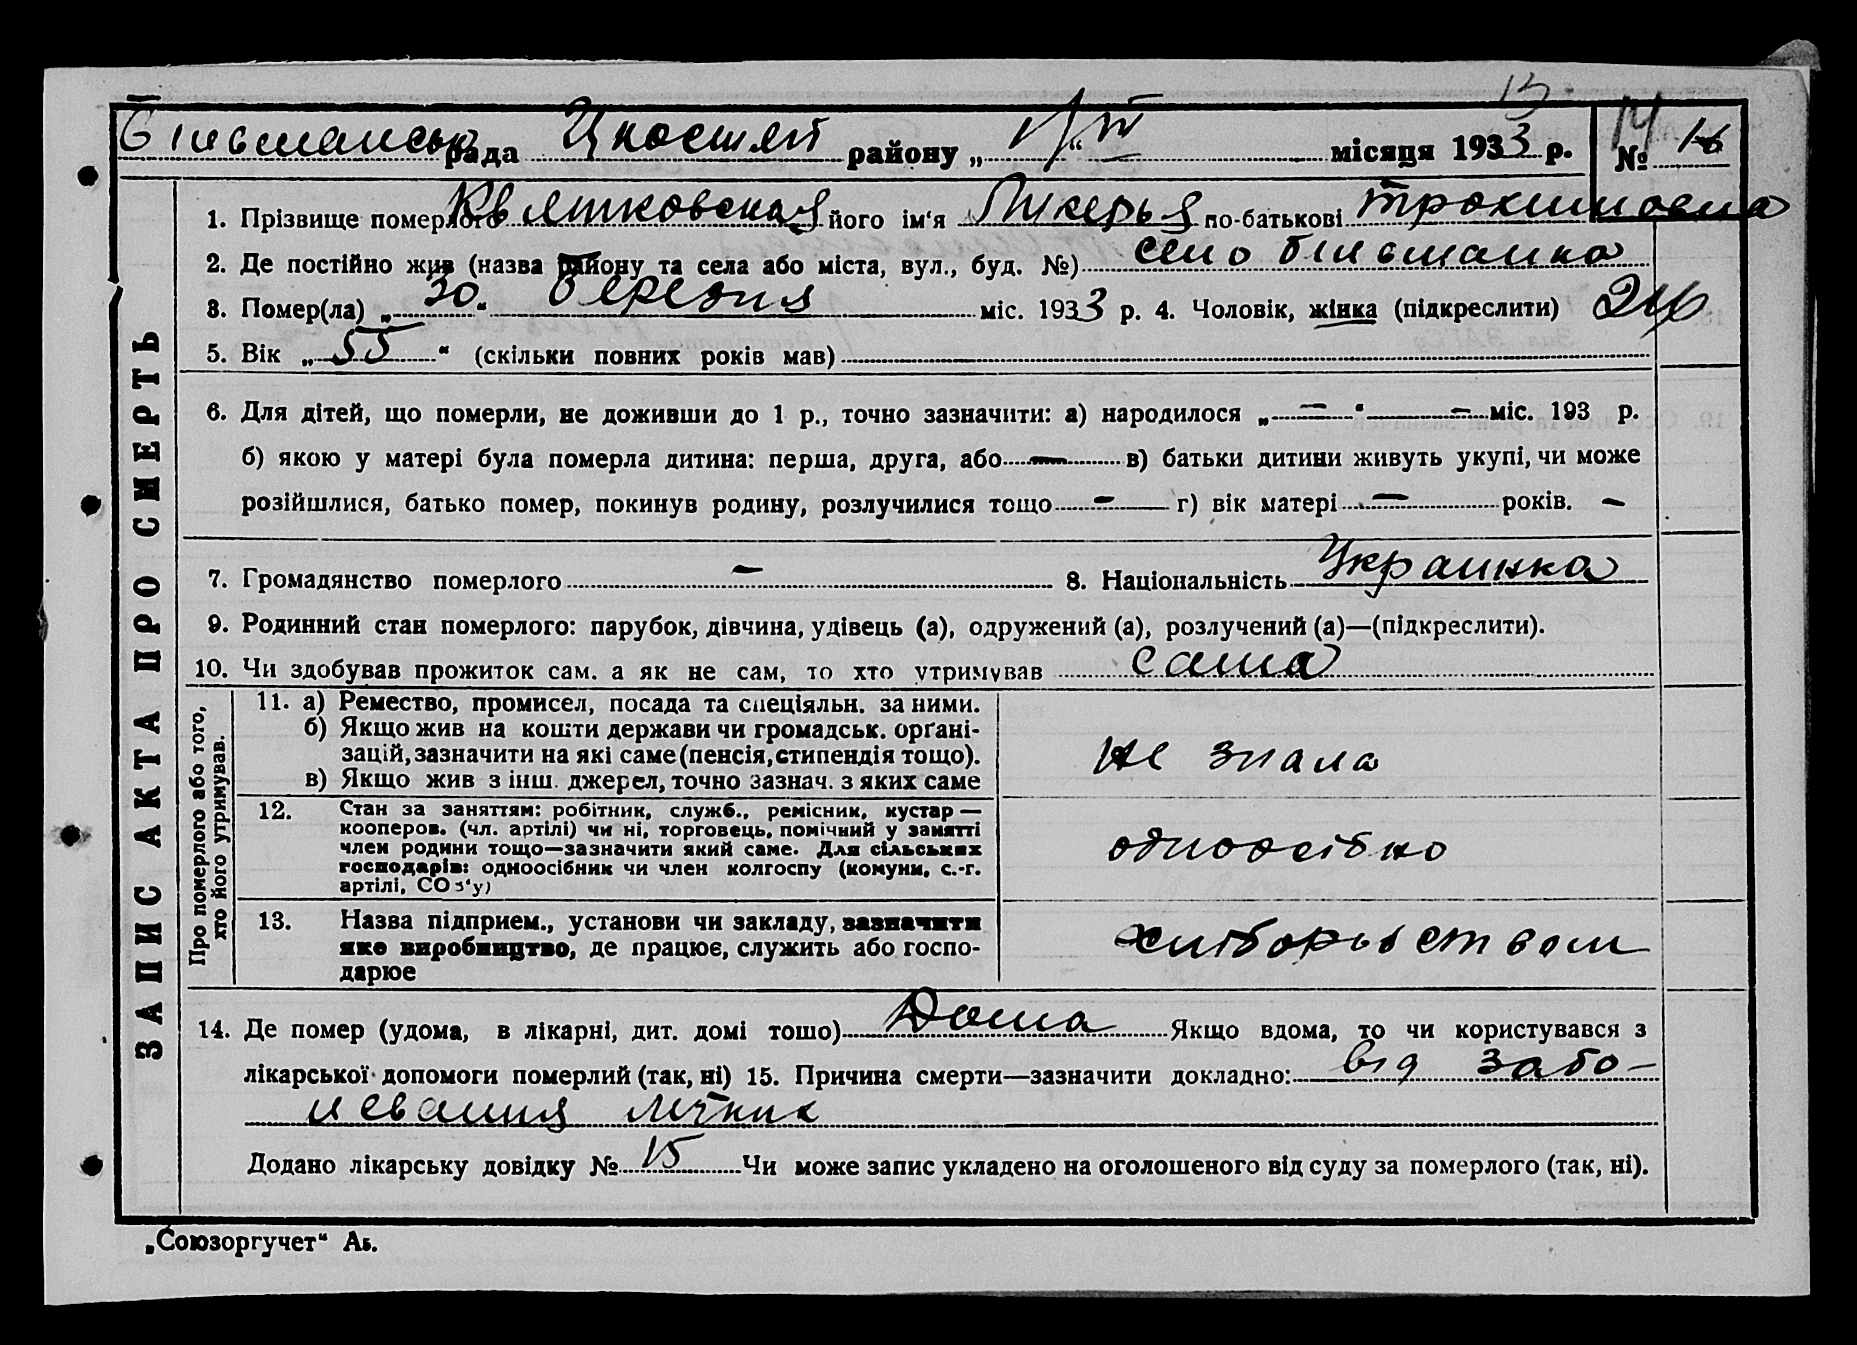 рада району „ 1/IV “ місяця 1933 р. № 14
ЗАПИС АКТА ПРО СМЕРТЬ
1. Прізвище померлого Квятковская його ім'я Лукерья по-батькові Трохимовна
2. Де постійно жив (назва району та села або міста, вул., буд. №) село
3. Помер(ла) „ 30 “ березня міс. 1933 р. 4. Чоловік, жінка (підкреслити)
5. Вік „ 55 “ (скільки повних років мав)
6. Для дітей, що померли, не доживши до 1 р., точно зазначити: а) народилося „ — “ — міс. 193 р.
б) якою у матері була померла дитина: перша, друга, або — в) батьки дитини живуть укупі, чи може
розійшлися, батько помер, покинув родину, розлучилися тощо — г) вік матері — років. —
7. Громадянство померлого — 8. Національність Украинка
9. Родинний стан померлого: парубок, дівчина, удівець (а), одружений (а), розлучений (а)—(підкреслити).
10. Чи здобував прожиток сам. а як не сам, то хто утримував сама
Про померлого або того, хто його утримував.
11. а) Ремество, промисел, посада та спеціяльн. за ними.
б) Якщо жив на кошти держави чи громадськ. орґані-
зацій, зазначити на які саме (пенсія, стипендія тощо).
в) Якщо жив з інш. джерел, точно зазнач. з яких саме
не знала
12. Стан за заняттям: робітник, служб., ремісник, кустар —
кооперов. (чл. артілі) чи ні, торговець, помічний у занятті
член родини тощо—зазначити який саме. Для сільських
господарів: одноосібник чи член колгоспу (комуни, с.-г.
артілі, СОЗ'у)
одноосібно
13. Назва підприєм., установи чи закладу, зазначити
яке виробництво, де працює, служить або госпо-
дарює
хліборобством
14. Де помер (удома, в лікарні, дит. домі тощо) Дома Якщо вдома, то чи користувався з
лікарської допомоги померлий (так, ні) 15. Причина смерти—зазначити докладно: від забо-
левания
Додано лікарську довідку № 15 Чи може запис укладено на оголошеного від суду за померлого (так, ні).
„Союзоргучет“ Аь.